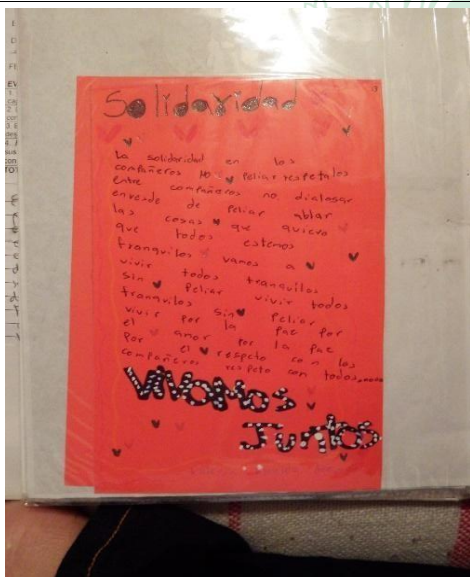 Solidaridad
La solidaridad en los
compañeros no peliar respetalos
entre compañeros no dialogar
enresde de peliar ablar
las cosas que quiero
que todos estemos
tranquilos vamos a
vivir todos tranquilos
sin peliar vivir todos
tranquilos sin peliar
vivir por la paz por
el amor por la paz
por el respeto con los
compañeros respeto con todos
VIVAMOS
JUNTOS